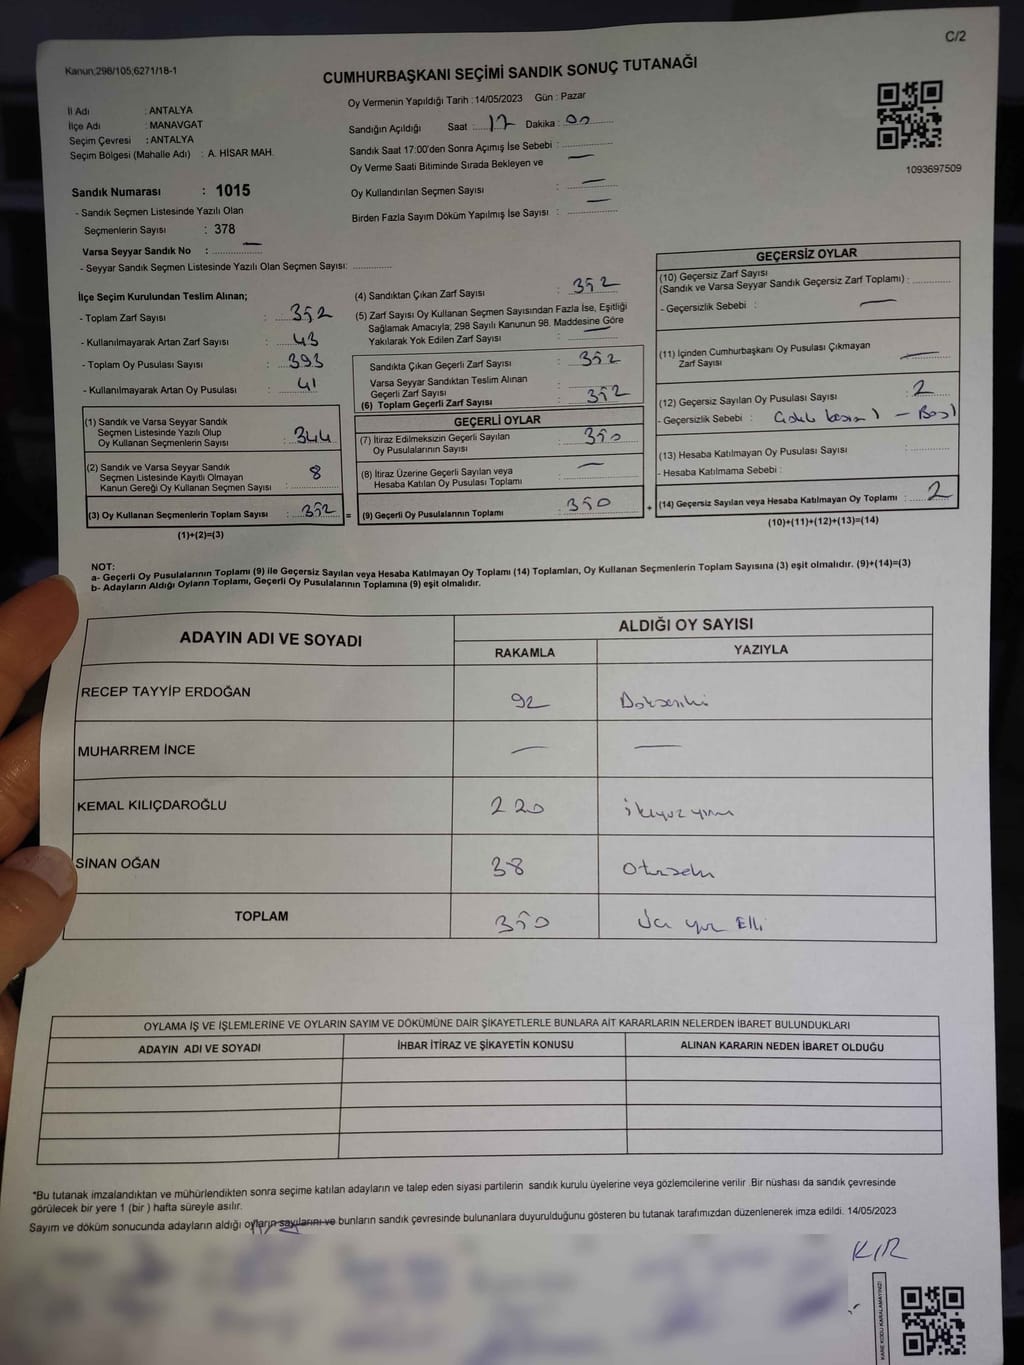 C/2
Kanun;298/105;6271/18-1
CUMHURBAŞKANI SEÇİMİ SANDIK SONUÇ TUTANAĞI
İl Adı : ANTALYA
İlçe Adı : MANAVGAT
Seçim Çevresi : ANTALYA
Seçim Bölgesi (Mahalle Adı) : A. HİSAR MAH.
Sandık Numarası : 1015
- Sandık Seçmen Listesinde Yazılı Olan
Seçmenlerin Sayısı : 378
Varsa Seyyar Sandık No : —
- Seyyar Sandık Seçmen Listesinde Yazılı Olan Seçmen Sayısı:
Oy Vermenin Yapıldığı Tarih : 14/05/2023 Gün : Pazar
Sandığın Açıldığı Saat : 17 Dakika : 00
Sandık Saat 17:00'den Sonra Açımış İse Sebebi :
Oy Verme Saati Bitiminde Sırada Bekleyen ve —
Oy Kullandırılan Seçmen Sayısı : —
Birden Fazla Sayım Döküm Yapılmış İse Sayısı : —
1093697509
İlçe Seçim Kurulundan Teslim Alınan;
- Toplam Zarf Sayısı : 392
- Kullanılmayarak Artan Zarf Sayısı : 43
- Toplam Oy Pusulası Sayısı : 393
- Kullanılmayarak Artan Oy Pusulası : 41
(1) Sandık ve Varsa Seyyar Sandık
Seçmen Listesinde Yazılı Olup
Oy Kullanan Seçmenlerin Sayısı : 344
(2) Sandık ve Varsa Seyyar Sandık
Seçmen Listesinde Kayıtlı Olmayan
Kanun Gereği Oy Kullanan Seçmen Sayısı : 8
(3) Oy Kullanan Seçmenlerin Toplam Sayısı : 352 =
(1)+(2)=(3)
(4) Sandıktan Çıkan Zarf Sayısı : 352
(5) Zarf Sayısı Oy Kullanan Seçmen Sayısından Fazla İse, Eşitliği
Sağlamak Amacıyla; 298 Sayılı Kanunun 98. Maddesine Göre
Yakılarak Yok Edilen Zarf Sayısı : —
Sandıkta Çıkan Geçerli Zarf Sayısı : 352
Varsa Seyyar Sandıktan Teslim Alınan
Geçerli Zarf Sayısı
(6) Toplam Geçerli Zarf Sayısı : 352
GEÇERLİ OYLAR
(7) İtiraz Edilmeksizin Geçerli Sayılan
Oy Pusulalarının Sayısı : 350
(8) İtiraz Üzerine Geçerli Sayılan veya
Hesaba Katılan Oy Pusulası Toplamı : —
(9) Geçerli Oy Pusulalarının Toplamı : 350 +
GEÇERSİZ OYLAR
(10) Geçersiz Zarf Sayısı
(Sandık ve Varsa Seyyar Sandık Geçersiz Zarf Toplamı) :
- Geçersizlik Sebebi : —
(11) İçinden Cumhurbaşkanı Oy Pusulası Çıkmayan
Zarf Sayısı : —
(12) Geçersiz Sayılan Oy Pusulası Sayısı : 2
- Geçersizlik Sebebi : 1 - Boş 1
(13) Hesaba Katılmayan Oy Pusulası Sayısı :
- Hesaba Katılmama Sebebi :
(14) Geçersiz Sayılan veya Hesaba Katılmayan Oy Toplamı : 2
(10)+(11)+(12)+(13)=(14)
NOT:
a- Geçerli Oy Pusulalarının Toplamı (9) ile Geçersiz Sayılan veya Hesaba Katılmayan Oy Toplamı (14) Toplamları, Oy Kullanan Seçmenlerin Toplam Sayısına (3) eşit olmalıdır. (9)+(14)=(3)
b- Adayların Aldığı Oyların Toplamı, Geçerli Oy Pusulalarının Toplamına (9) eşit olmalıdır.
ADAYIN ADI VE SOYADI ALDIĞI OY SAYISI
RAKAMLA YAZIYLA
RECEP TAYYİP ERDOĞAN 92 Doksaniki
MUHARREM İNCE — —
KEMAL KILIÇDAROĞLU 220 ikiyüzyirmi
SİNAN OĞAN 38 Otuzsekiz
TOPLAM 350 Üç yüz Elli
OYLAMA İŞ VE İŞLEMLERİNE VE OYLARIN SAYIM VE DÖKÜMÜNE DAİR ŞİKAYETLERLE BUNLARA AİT KARARLARIN NELERDEN İBARET BULUNDUKLARI
ADAYIN ADI VE SOYADI İHBAR İTİRAZ VE ŞİKAYETİN KONUSU ALINAN KARARIN NEDEN İBARET OLDUĞU
*Bu tutanak imzalandıktan ve mühürlendikten sonra seçime katılan adayların ve talep eden siyasi partilerin sandık kurulu üyelerine veya gözlemcilerine verilir .Bir nüshası da sandık çevresinde
görülecek bir yere 1 (bir ) hafta süreyle asılır.
Sayım ve döküm sonucunda adayların aldığı oyların sayılarını ve bunların sandık çevresinde bulunanlara duyurulduğunu gösteren bu tutanak tarafımızdan düzenlenerek imza edildi. 14/05/2023
KIR
KARE KODU KARALAMAYINIZ!